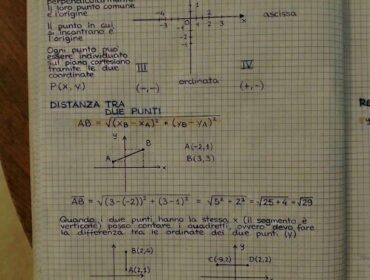 perpendicolarmente
Il loro punto comune
è l'origine
Il punto in cui
si incontrano è
l'origine
Ogni punto può
essere individuato
sul piano cartesiano
tramite le due
coordinate
P(x, y)
-4 -3
1 2 3
x
ascissa
-1
-2
-4
III
(-,-)
ordinata
IV
(+,-)
DISTANZA TRA
DUE PUNTI
AB = √(xB - xA)² + (yB - yA)²
y
A
B
x
A(-2,1)
B(3,3)
AB = √(3-(-2))² + (3-1)² = √5² + 2² = √25+4 = √29
Quando i due punti hanno la stessa x (il segmento è
verticale) posso contare i quadretti, ovvero devo fare
la differenza tra le ordinate dei due punti (y)
y
B(2,4)
A(2,1)
y
C(-9,2)
D(2,2)
RE